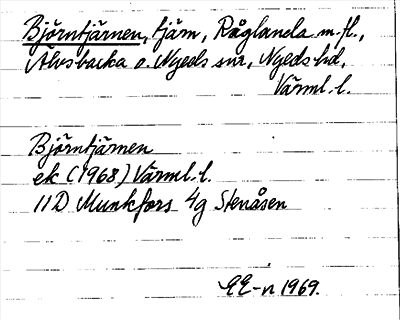 Björntjärnen, tjärn, Råglanda m. fl.,
Älvsbacka o. Nyeds snr, Nyeds hd,
Värml. l.
Björntjärnen
ek (1968) Värml. l.
11D Munkfors 4g Stenåsen
EE-n 1969.